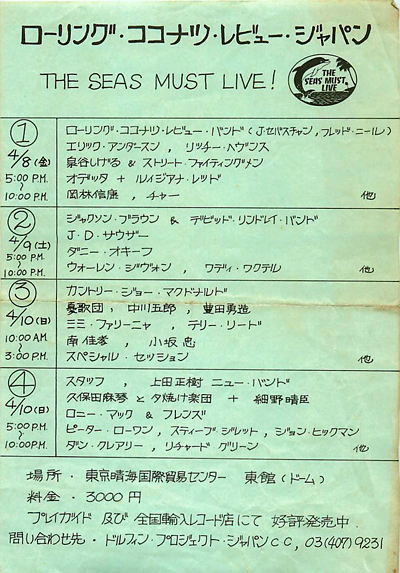 ローリング・ココナツ・レビュー・ジャパン
THE SEAS MUST LIVE!
THE
SEAS MUST
LIVE
1
4/8(金)
5:00 P.M.
〜
10:00 P.M.
ローリング・ココナツ・レビュー・バンド(J.セバスチャン,フレッド・ニール)
エリック・アンダースン , リッチー・ヘヴンス
泉谷しげる & ストリート・ファイティングメン
オデッタ + ルイジアナ・レッド
岡林信康 , チャー 他
2
4/9(土)
5:00 P.M.
〜
10:00 P.M.
ジャクソン・ブラウン & デビッド・リンドレイ・バンド
J・D・サウザー
ダニー・オキーフ
ウォーレン・ジヴォン , ワディ・ワクテル 他
3
4/10(日)
10:00 A.M.
〜
3:00 P.M.
カントリー・ジョー・マクドナルド
憂歌団 , 中川五郎 , 豊田勇造
ミミ・ファリーニャ , テリー・リード
南佳孝 , 小坂忠
スペシャル・セッション 他
4
4/10(日)
5:00 P.M.
〜
10:00 P.M.
スタッフ , 上田正樹 ニュー・バンド
久保田麻琴と夕焼け楽団 + 細野晴臣
ロニー・マック & フレンズ
ピーター・ローワン , スティーブ・ジレット , ジョン・ヒックマン
ダン・クレアリー , リチャード グリーン 他
場所・東京晴海国際貿易センター 東館(ドーム)
料金・3000円
プレイガイド 及び 全国輸入レコード店にて 好評発売中.
問い合わせ先・ドルフィン・プロジェクト・ジャパンCC, 03(407)9231